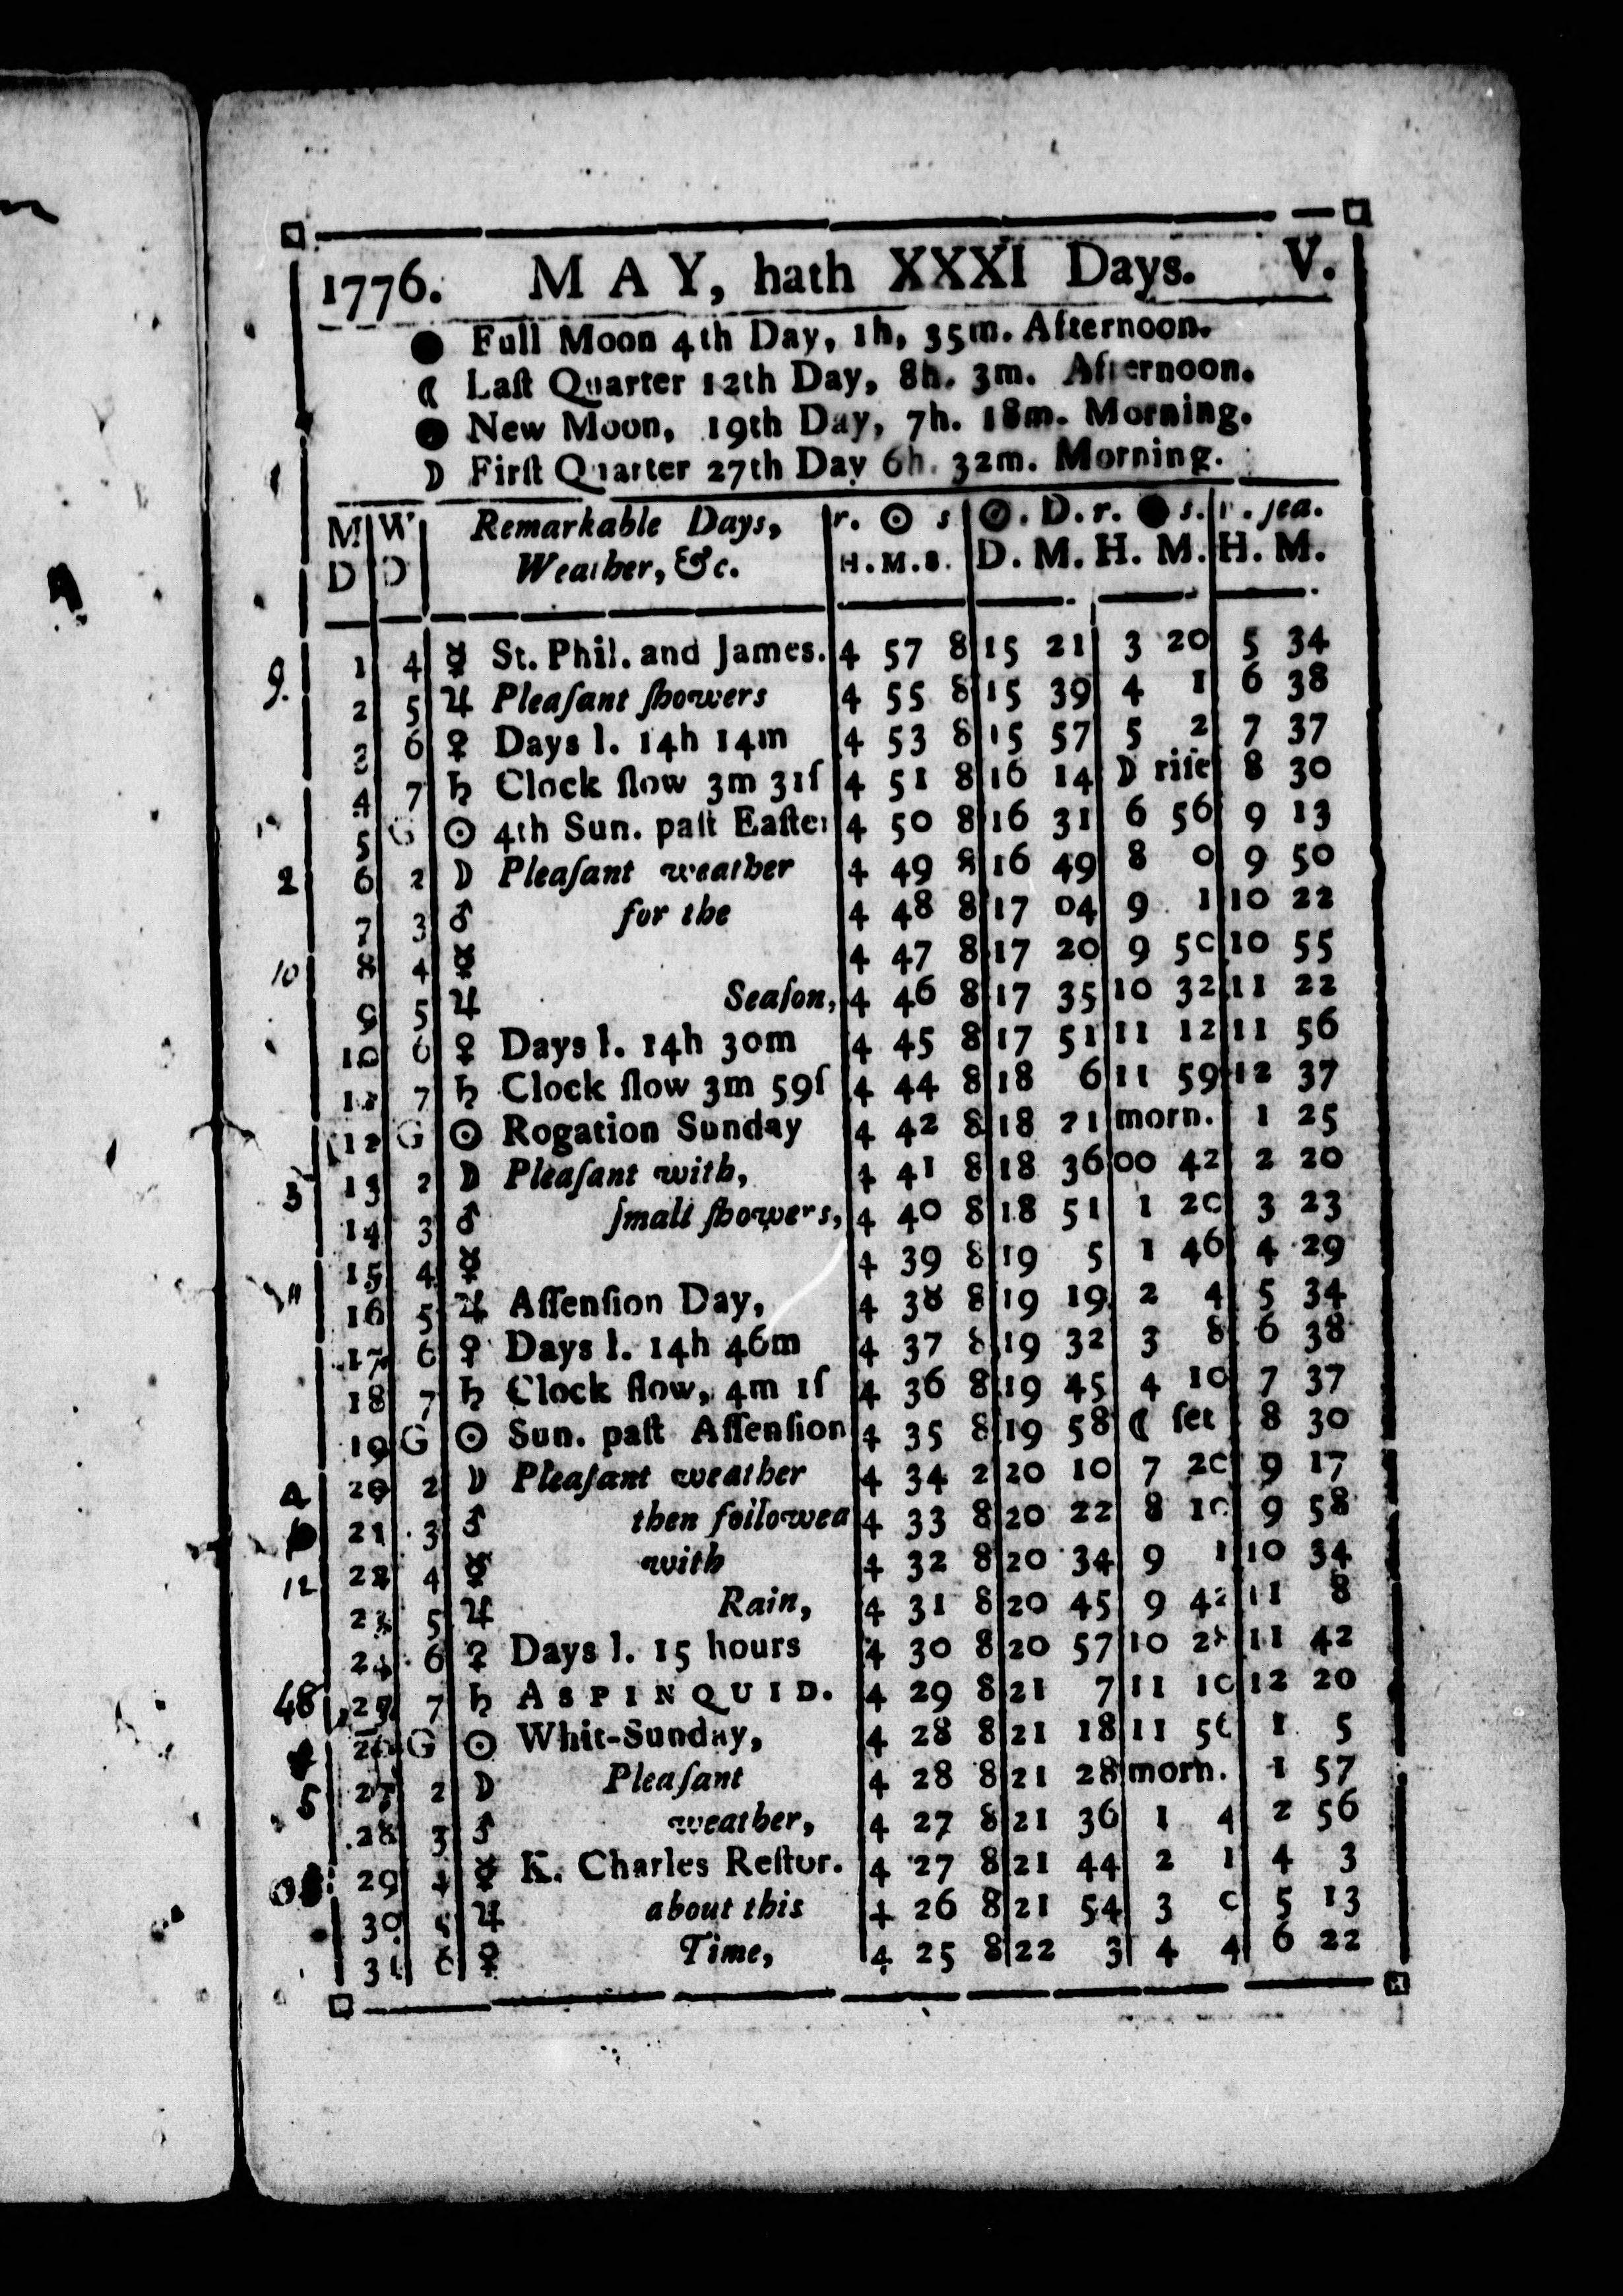 1776. MAY, hath XXXI Days. V.
● Full Moon 4th Day, 1h, 35m. Afternoon.
☾ Laſt Quarter 12th Day, 8h. 3m. Afternoon.
● New Moon, 19th Day, 7h. 18m. Morning.
☽ Firſt Quarter 27th Day 6h. 32m. Morning.
M W Remarkable Days, r. ☉ s ☉. D. r. ● s. sea.
D D Weather, &c. H. M. 8. D. M. H. M. H. M.
1 4 ☿ St. Phil. and James. 4 57 8 15 21 3 20 5 34
2 5 ♃ Pleaſant ſhowers 4 55 8 15 39 4 1 6 38
3 6 ♀ Days l. 14h 14m 4 53 8 15 57 5 2 7 37
4 7 ♄ Clock ſlow 3m 31ſ 4 51 8 16 14 ☽ riſe 8 30
5 G ☉ 4th Sun. paſt Eaſter 4 50 8 16 31 6 56 9 13
2 6 2 ☽ Pleaſant weather 4 49 8 16 49 8 0 9 50
7 3 ♂ for the 4 48 8 17 04 9 1 10 22
10 8 4 ☿ 4 47 8 17 20 9 50 10 55
9 5 ♃ Seaſon, 4 46 8 17 35 10 32 11 22
10 6 ♀ Days l. 14h 30m 4 45 8 17 51 11 12 11 56
11 7 ♄ Clock ſlow 3m 59ſ 4 44 8 18 6 11 59 12 37
12 G ☉ Rogation Sunday 4 42 8 18 21 morn. 1 25
3 13 2 ☽ Pleaſant with, 4 41 8 18 36 00 42 2 20
14 3 ♂ ſmall ſhowers, 4 40 8 18 51 1 20 3 23
15 4 ☿ 4 39 8 19 5 1 46 4 29
11 16 5 ♃ Aſſenſion Day, 4 38 8 19 19 2 4 5 34
17 6 ♀ Days l. 14h 46m 4 37 8 19 32 3 8 6 38
18 7 ♄ Clock ſlow, 4m 1ſ 4 36 8 19 45 4 10 7 37
19 G ☉ Sun. paſt Aſſenſion 4 35 8 19 58 ☾ ſet 8 30
20 2 ☽ Pleaſant weather 4 34 2 20 10 7 20 9 17
21 3 ♂ then followed 4 33 8 20 22 8 10 9 58
12 22 4 ☿ with 4 32 8 20 34 9 1 10 34
23 5 ♃ Rain, 4 31 8 20 45 9 42 11 8
24 6 ♀ Days l. 15 hours 4 30 8 20 57 10 28 11 42
48 25 7 ♄ ASPINQUID. 4 29 8 21 7 11 10 12 20
26 G ☉ Whit-Sunday, 4 28 8 21 18 11 56 1 5
5 27 2 ☽ Pleaſant 4 28 8 21 28 morn. 1 57
28 3 ♂ weather, 4 27 8 21 36 1 4 2 56
29 4 ☿ K. Charles Reſtor. 4 27 8 21 44 2 1 4 3
30 5 ♃ about this 4 26 8 21 54 3 0 5 13
31 6 ♀ Time, 4 25 8 22 3 4 4 6 22